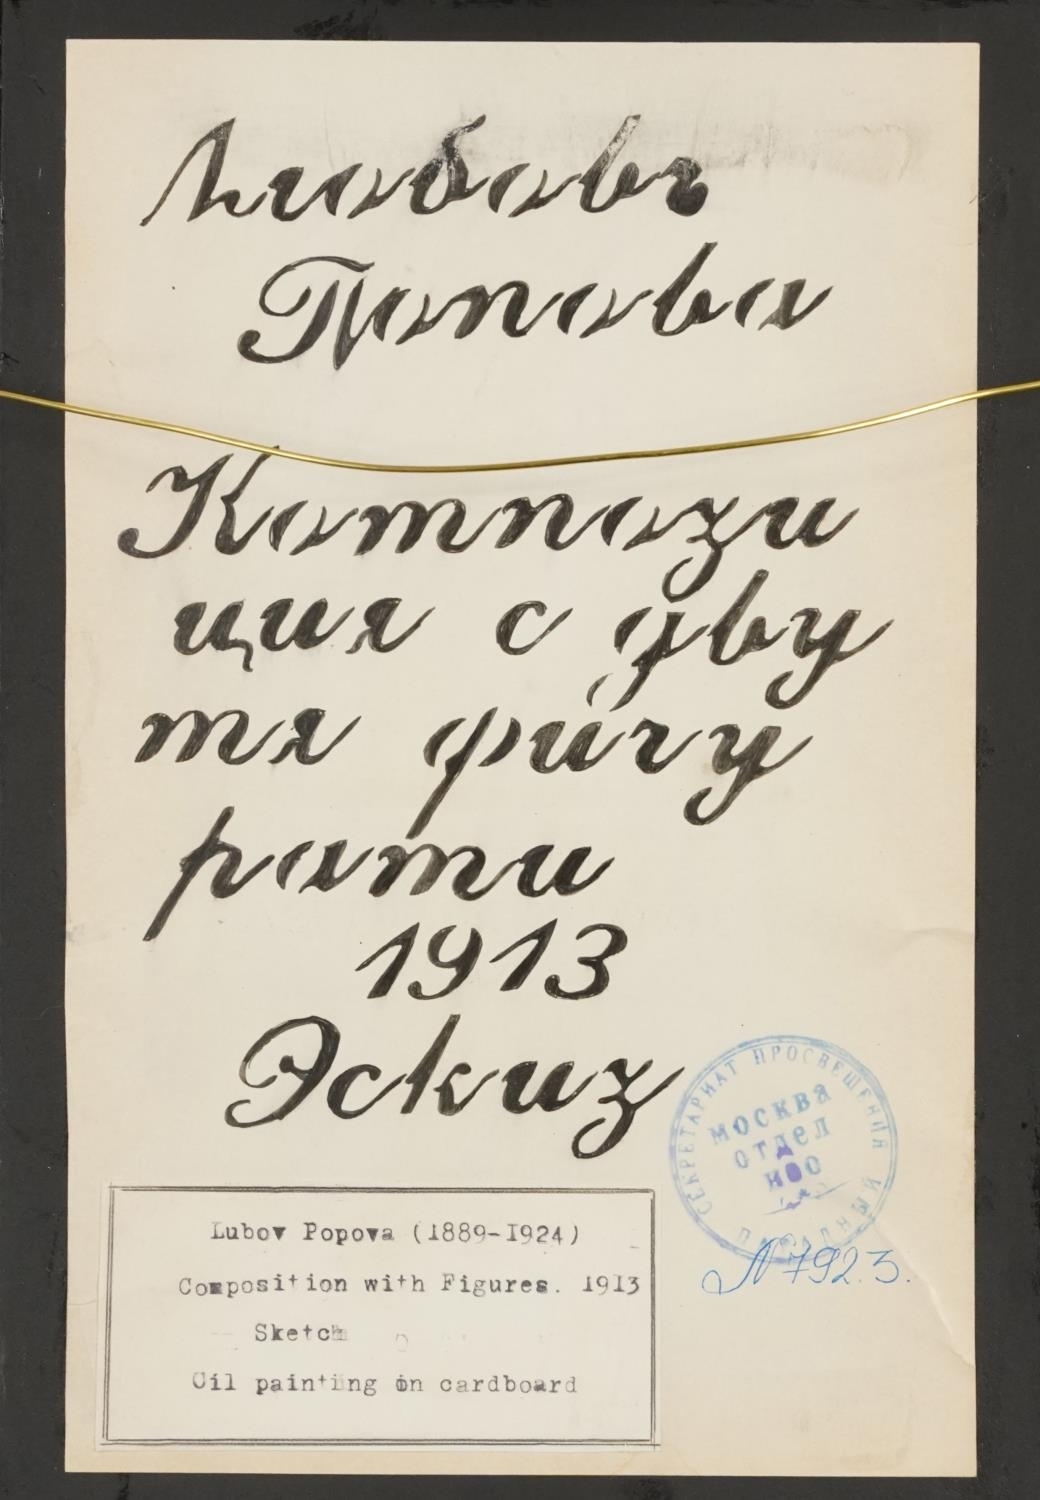 Любовь
Попова
Компози
ция с дву
мя фигу
рами
1913
Эскиз
СЕКРЕТАРИАТ ПРОСВЕЩЕНИЯ
МОСКВА
ОТДЕЛ
ИФО
N 792.3.
Lubov Popova (1889-1924)
Composition with Figures. 1913
Sketch
Oil painting on cardboard